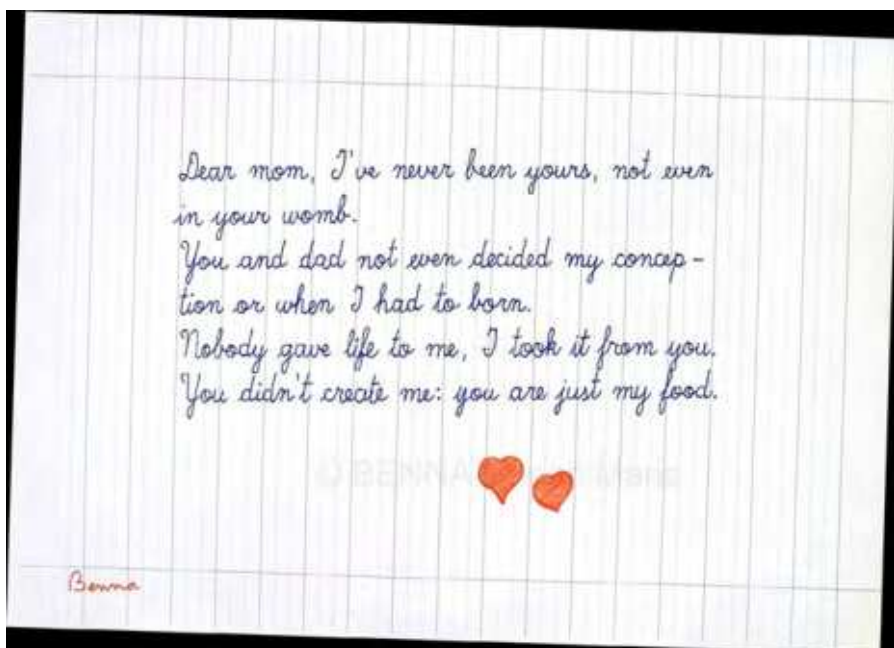 Dear mom, I've never been yours, not even
in your womb.
You and dad not even decided my concep-
tion or when I had to born.
Nobody gave life to me, I took it from you.
You didn't create me: you are just my food.
© BENNA
Benna